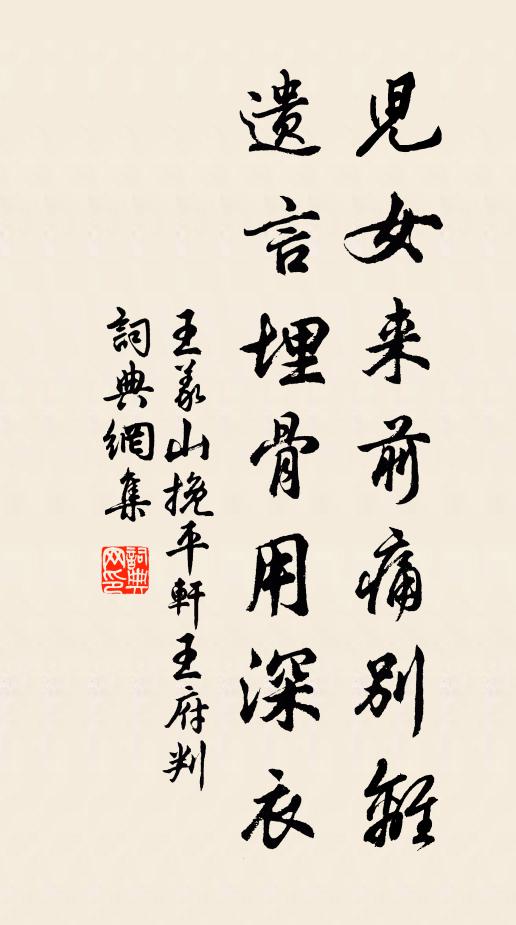 兒女来前痛別離
遺言埋骨用深衣
王義山挽平軒王府判
詞典網集
詞典网印